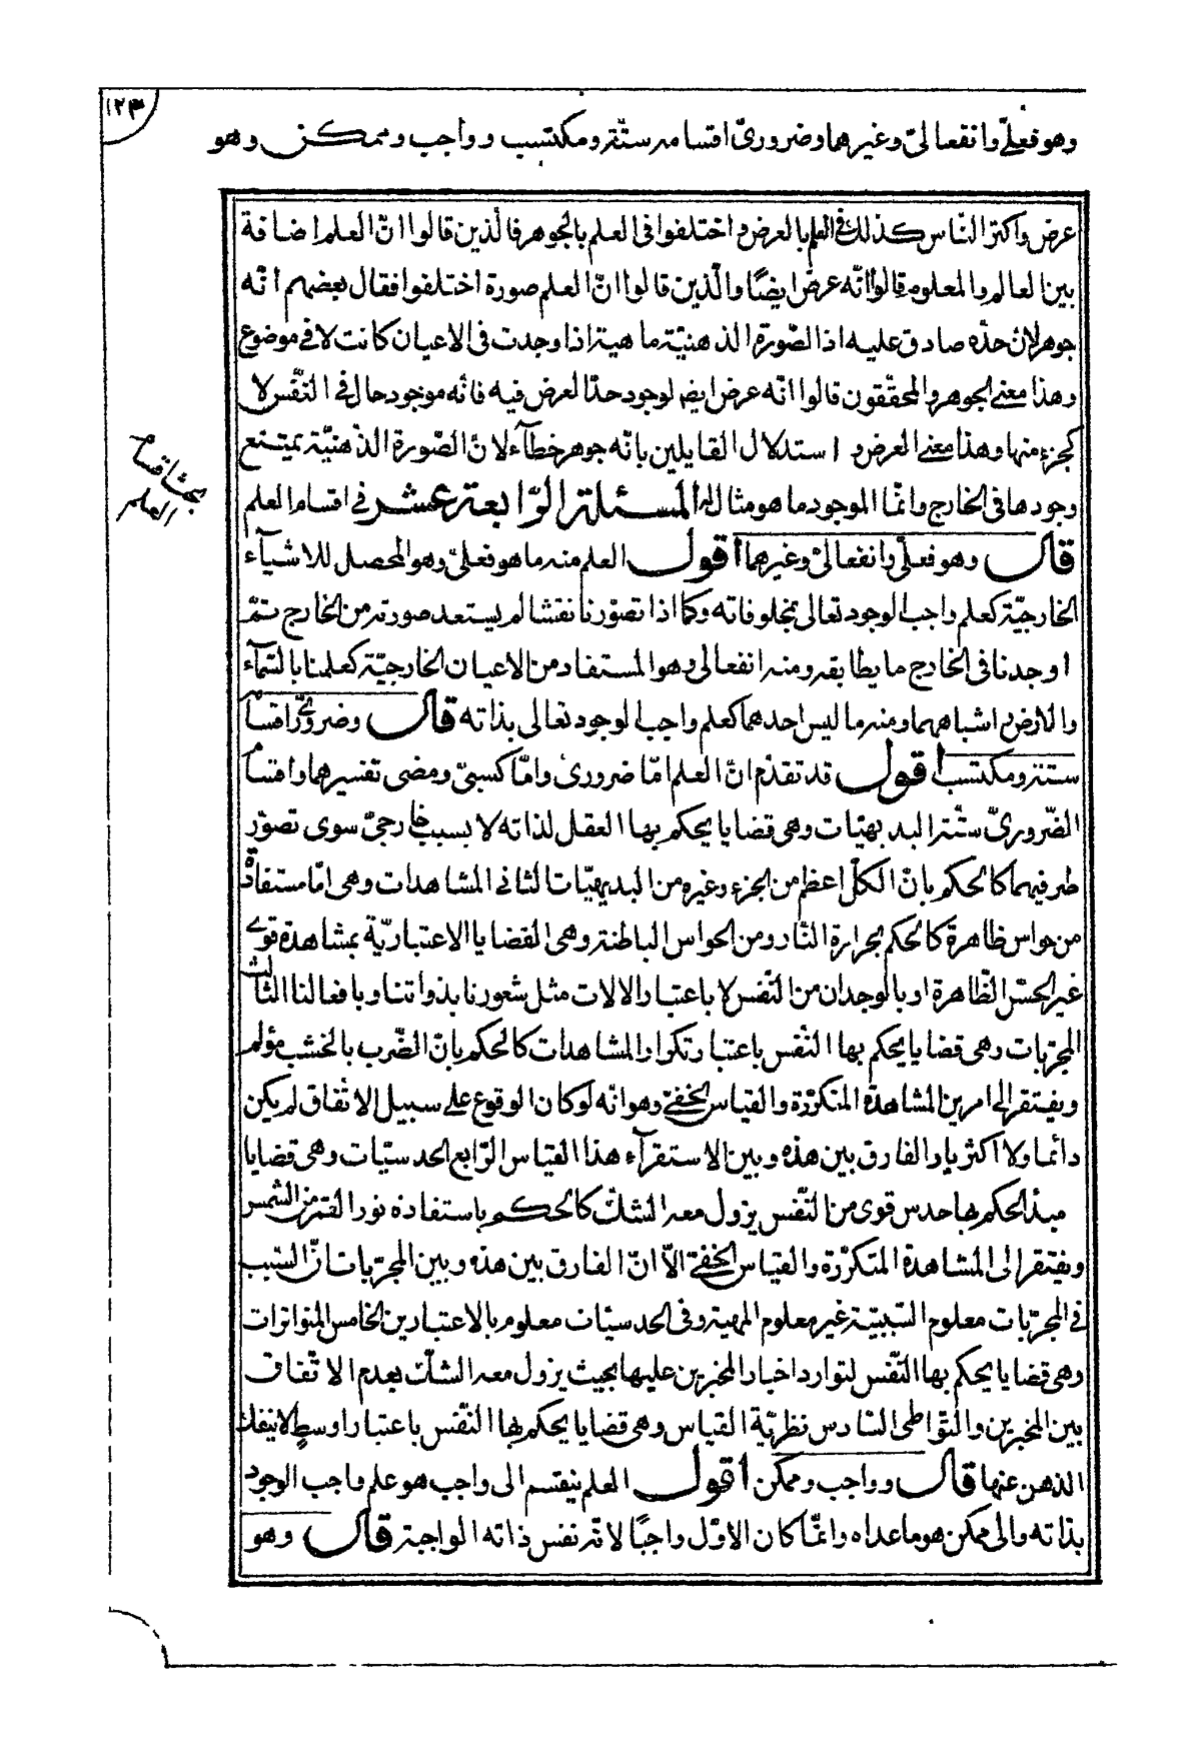 ١٢٣
وهو فعلىّ وانفعالىّ وغيرهما وضرورىّ اقسامه ستّة ومكتسب وواجب وممكن وهو
عرض واكثر النّاس كذلك فى العلم بالعرض واختلفوا فى العلم بالجوهر فالّذين قالوا انّ العلم اضافة
بين العالم والمعلوم قالوا انّه عرض ايضًا والّذين قالوا انّ العلم صورة اختلفوا فقال بعضهم انّه
جوهر لانّ حدّه صادق عليه اذ الصّورة الذهنيّة ماهية اذا وجدت فى الاعيان كانت لا فى موضوع
وهذا معنى الجوهر والمحقّقون قالوا انّه عرض ايضا لوجود حدّ العرض فيه فانّه موجود حال فى النّفس لا
كجزء منها وهذا معنى العرض و استدلال القايلين بانّه جوهر خطآء لانّ الصّورة الذهنيّة يمتنع
وجودها فى الخارج وانّما الموجود ما هو مثال له المسئلة الرّابعة عشر فى اقسام العلم
قال وهو فعلىّ وانفعالىّ وغيرهما اقول العلم منه ما هو فعلىّ وهو المحصل للاشيآء
الخارجيّة كعلم واجب الوجود تعالى بمخلوقاته وكما اذا تصوّرنا نقشا لم يستعد صورته من الخارج ثمّ
اوجدنا فى الخارج ما يطابقه ومنه انفعالى وهو المستفاد من الاعيان الخارجيّة كعلمنا بالسّمآء
والارض واشباههما ومنه ما ليس احدهما كعلم واجب الوجود تعالى بذاته قال وضرورىّ اقسامه
ستّة ومكتسب اقول قد تقدّم انّ العلم امّا ضرورىّ وامّا كسبىّ ومضى تفسيرهما واقسام
الضّرورىّ ستّة البديهيّات وهى قضايا يحكم بها العقل لذاته لا بسبب خارجىّ سوى تصوّر
طرفيهما كالحكم بانّ الكلّ اعظم من الجزء وغيره من البديهيّات الثانى المشاهدات وهى امّا مستفادة
من حواس ظاهرة كالحكم بحرارة النّار ومن الحواس الباطنة وهى القضايا الاعتباريّة بمشاهدة قوى
غير الحسّ الظّاهرة او بالوجدان من النّفس لا باعتبار الالات مثل شعورنا بذواتنا وبافعالنا الثّالث
المجرّبات وهى قضايا يحكم بها النّفس باعتبار تكرار المشاهدات كالحكم بانّ الضّرب بالخشب مؤلم
ويفتقر الى امرين المشاهدة المتكرّرة والقياس الخفىّ وهو انّه لو كان الوقوع على سبيل الاتّفاق لم يكن
دائما ولا اكثريا والفارق بين هذه وبين الاستقرآء هذا القياس الرّابع الحدسيّات وهى قضايا
مبدأ الحكم بها حدس قوى من النّفس يزول معه الشكّ كالحكم باستفاذة نور القمر من الشّمس
ويفتقر الى المشاهدة المتكرّرة والقياس الخفىّ الّا انّ الفارق بين هذه وبين المجرّبات انّ السّبب
فى المجرّبات معلوم السّببيّة غير معلوم المهية وفى الحدسيّات معلوم بالاعتبارين الخامس المتواترات
وهى قضايا يحكم بها النّفس لتوارد اخبار المخبرين عليها بحيث يزول معه الشّك بعدم الاتّفاق
بين المخبرين والتّواطى السّادس نظريّة القياس وهى قضايا يحكم بها النّفس باعتبار اوسط لا ينفك
الذهن عنها قال وواجب وممكن اقول العلم ينقسم الى واجب هو علم واجب الوجود
بذاته والى ممكن هو ما عداه وانّما كان الاوّل واجبًا لانّه نفس ذاته الواجبة قال وهو
بحث اقسام
العلم